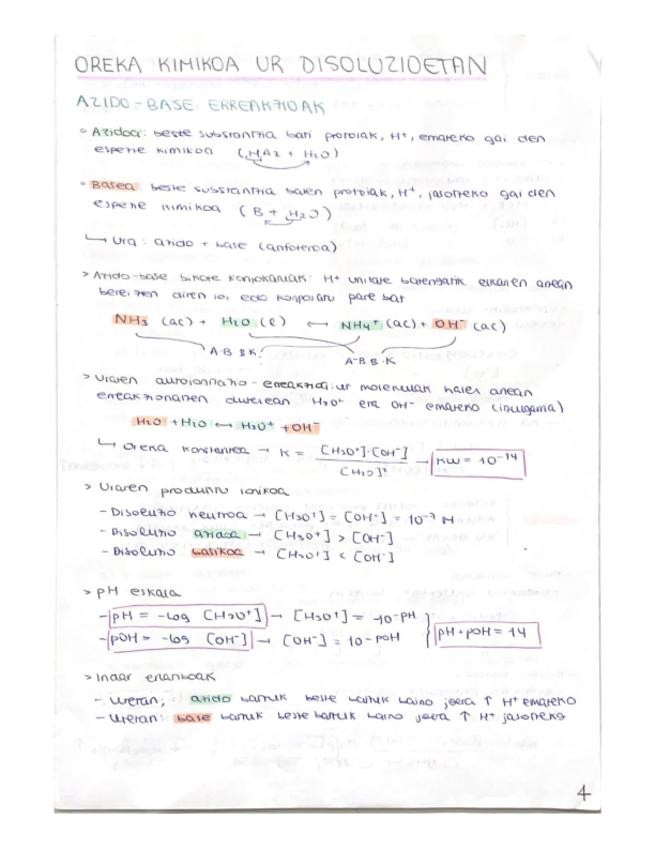 OREKA KIMIKOA UR DISOLUZIOETAN
AZIDO-BASE ERREAKZIOAK
° Azidoa: beste substantzia bati protoiak, H⁺, emateko gai den
espezie kimikoa (HAz + H₂O)
° Basea: beste substantzia baten protoiak, H⁺, jasotzeko gai den
espezie kimikoa (B + H₂O)
↳ Ura: azido + base (anfoteroa)
> Azido-base bikote konjokatuak: H⁺ unitate batengatik elkarren artean
bereizten diren ioi edo konposatu pare bat
NH₃ (ac) + H₂O (l) ↔ NH₄⁺ (ac) + OH⁻ (ac)
A-B B.K.
A-B B.K
> Uraren autoionizazio-erreakzioa: ur molekulak haien artean
erreakzionatzen dutenean H₃O⁺ eta OH⁻ emateko (itzulgarria)
H₂O + H₂O ↔ H₃O⁺ + OH⁻
↳ Oreka konstantea → K = [H₃O⁺]·[OH⁻] / [H₂O]² → KW = 10⁻¹⁴
> Uraren produktu ionikoa
- Disoluzio neutroa → [H₃O⁺] = [OH⁻] = 10⁻⁷ M
- Disoluzio azidoa → [H₃O⁺] > [OH⁻]
- Disoluzio basikoa → [H₃O⁺] < [OH⁻]
> pH eskala
- pH = -log [H₃O⁺] → [H₃O⁺] = 10-pH
- pOH = -log [OH⁻] → [OH⁻] = 10-pOH } pH+pOH = 14
> Indar erlatiboak
- Uretan; azido batzuk beste batzuk baino joera ↑ H⁺ emateko
- Uretan: base batzuk beste batzuk baino joera ↑ H⁺ jasotzeko
4